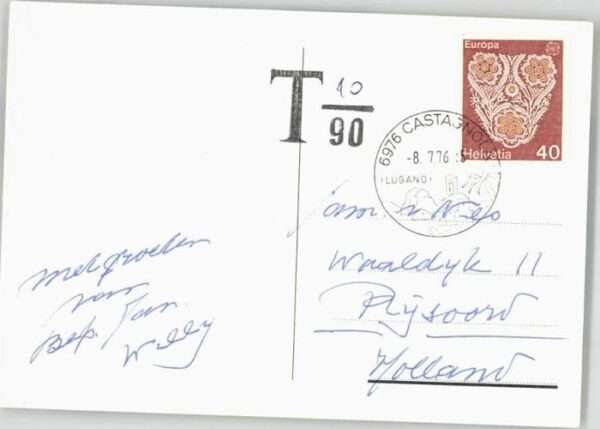 T 10
90
Europa
Helvetia 40
6976 CASTAGNOLA
-8.7.76
LUGANO
Fam. v Nes
Waaldyk 11
Rijsoord
Holland
met groeten
van
Bep. Jan.
Willy